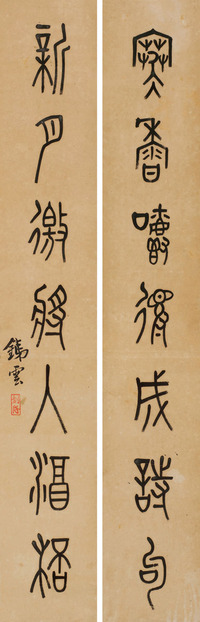 寒香嚼得成詩句
新月徼將入酒桮
銕雲